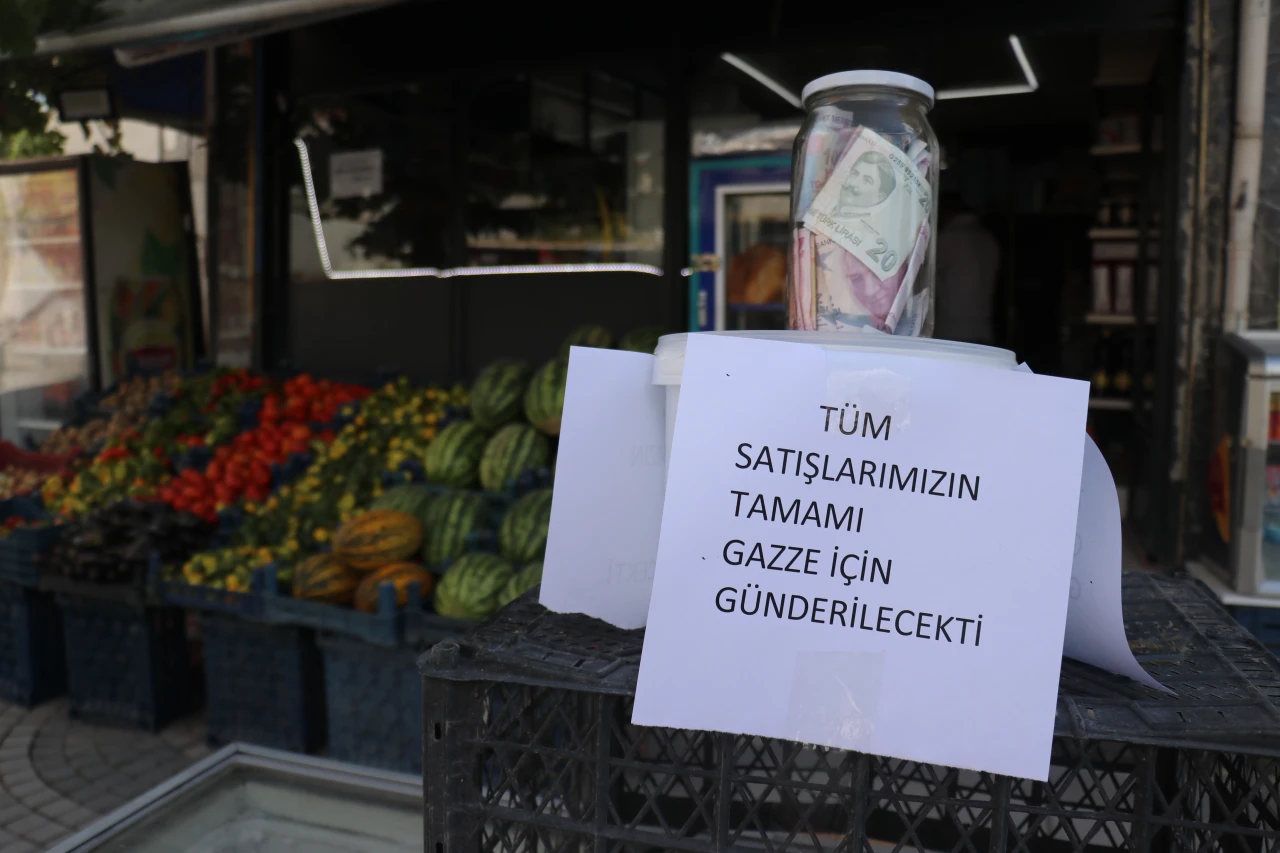 TÜRK LİRASI
20
TÜM
SATIŞLARIMIZIN
TAMAMI
GAZZE İÇİN
GÜNDERİLECEKTİ